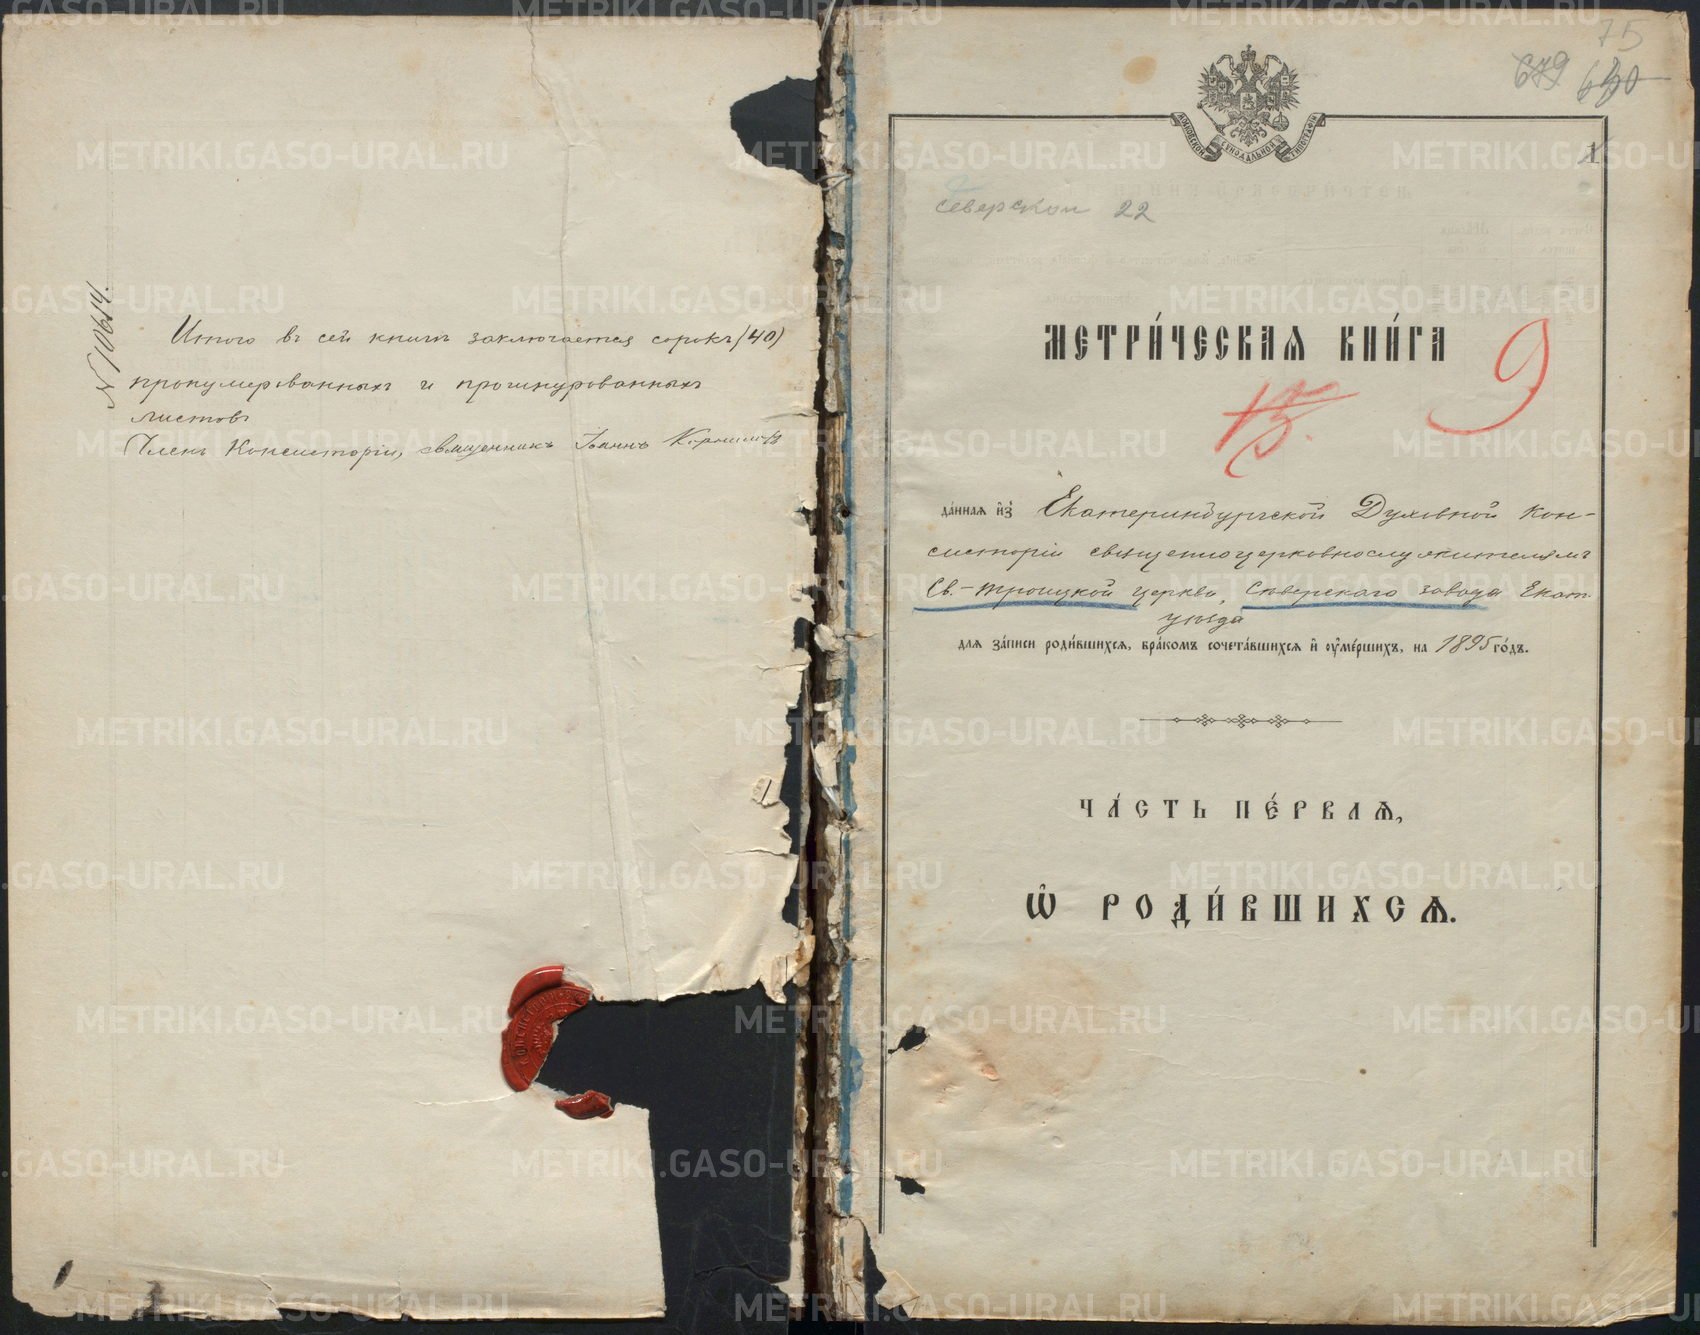 № 10614.
Итого въ сей книгѣ заключается сорокъ (40)
пронумерованныхъ и прошнурованныхъ
листовъ
Членъ Консисторіи, священникъ Іоаннъ Корниловъ
75
679 680
МОСКОВСКОЙ СѴНОДАЛЬНОЙ ТИПОГРАФІИ
1
Северской 22
МЕТРИ́ЧЕСКАѦ КНИ́ГА
9
13.
да́ннаѧ и҆з̾ Екатеринбургской Духовной Кон-
систоріи священноцерковнослужителямъ
Св.-Троицкой церкви, Сѣверскаго завода Екат.
уѣзда
длѧ за́писи роди́вшихсѧ, бра́комъ сочета́вшихсѧ и҆ ѹ҆ме́ршихъ, на 1895 го́дъ.
ЧА́СТЬ ПЕ́РВАѦ,
Ѡ҆ РОДИ́ВШИХСѦ.
METRIKI.GASO-URAL.RU